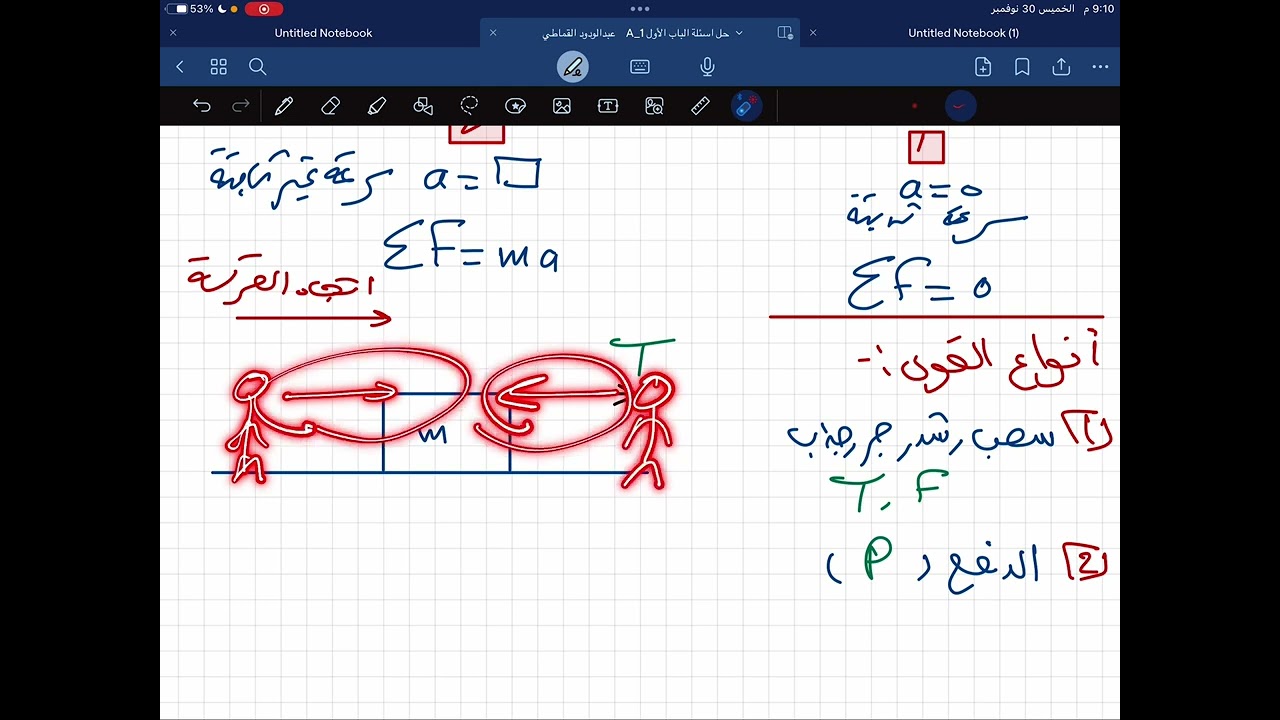 53%
9:10 م الخميس 30 نوفمبر
Untitled Notebook
حل اسئلة الباب الأول A_1 عبدالودود القماطي
Untitled Notebook (1)
1
a = 0
سرعة ثابتة
Σf = 0
a =
سرعة غير ثابتة
ΣF = ma
اتجاه الحركة
T
m
أنواع القوى :-
1 سحب، شد، جر، جذب
T, F
2 الدفع ( P )